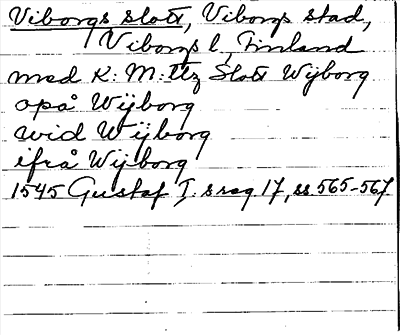 Viborgs slott, Viborgs stad,
Viborgs l, Finland
med K: M:ttz Slott Wijborg
opå Wijborg
wid Wijborg
ifrå Wijborg
1545 Gustaf I:s reg 17, ss 565-567